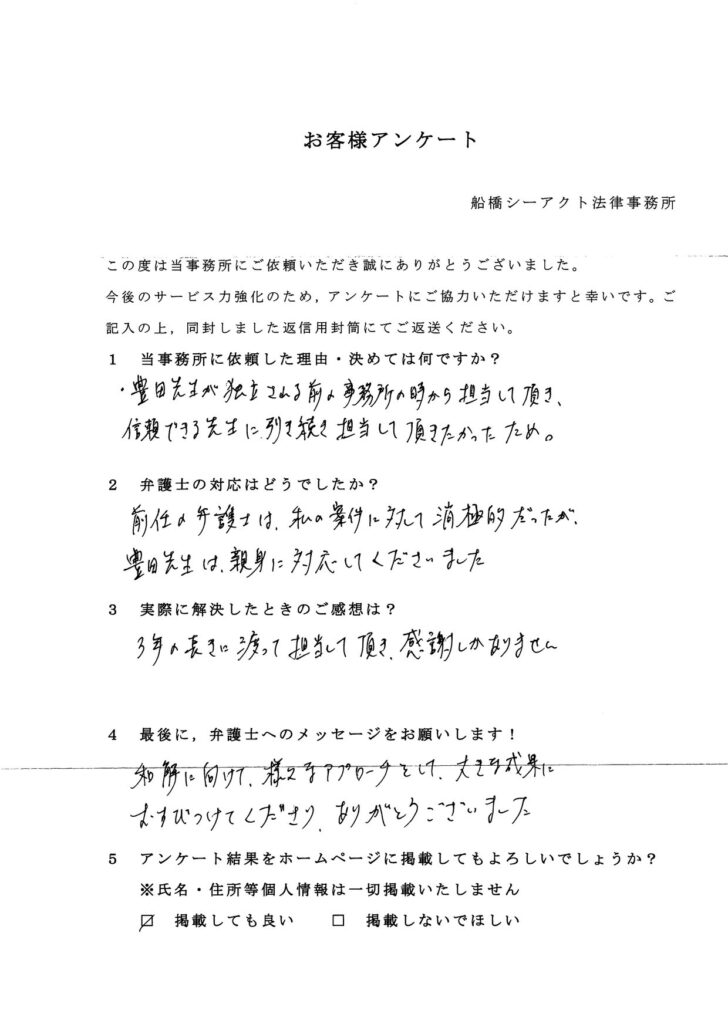 お客様アンケート
船橋シーアクト法律事務所
この度は当事務所にご依頼いただき誠にありがとうございました。
今後のサービス力強化のため,アンケートにご協力いただけますと幸いです。ご
記入の上,同封しました返信用封筒にてご返送ください。
1 当事務所に依頼した理由・決めては何ですか?
・豊田先生が独立される前の事務所の時から担当して頂き、
信頼できる先生に引き続き担当して頂きたかったため。
2 弁護士の対応はどうでしたか?
前任の弁護士は、私の案件に対して消極的だったが、
豊田先生は、親身に対応してくださいました
3 実際に解決したときのご感想は?
3年の長きに渡って担当して頂き、感謝しかありません
4 最後に,弁護士へのメッセージをお願いします!
和解に向けて、様々なアプローチをして、大きな成果に
むすびつけてくださり、ありがとうございました
5 アンケート結果をホームページに掲載してもよろしいでしょうか?
※氏名・住所等個人情報は一切掲載いたしません
☑ 掲載しても良い □ 掲載しないでほしい